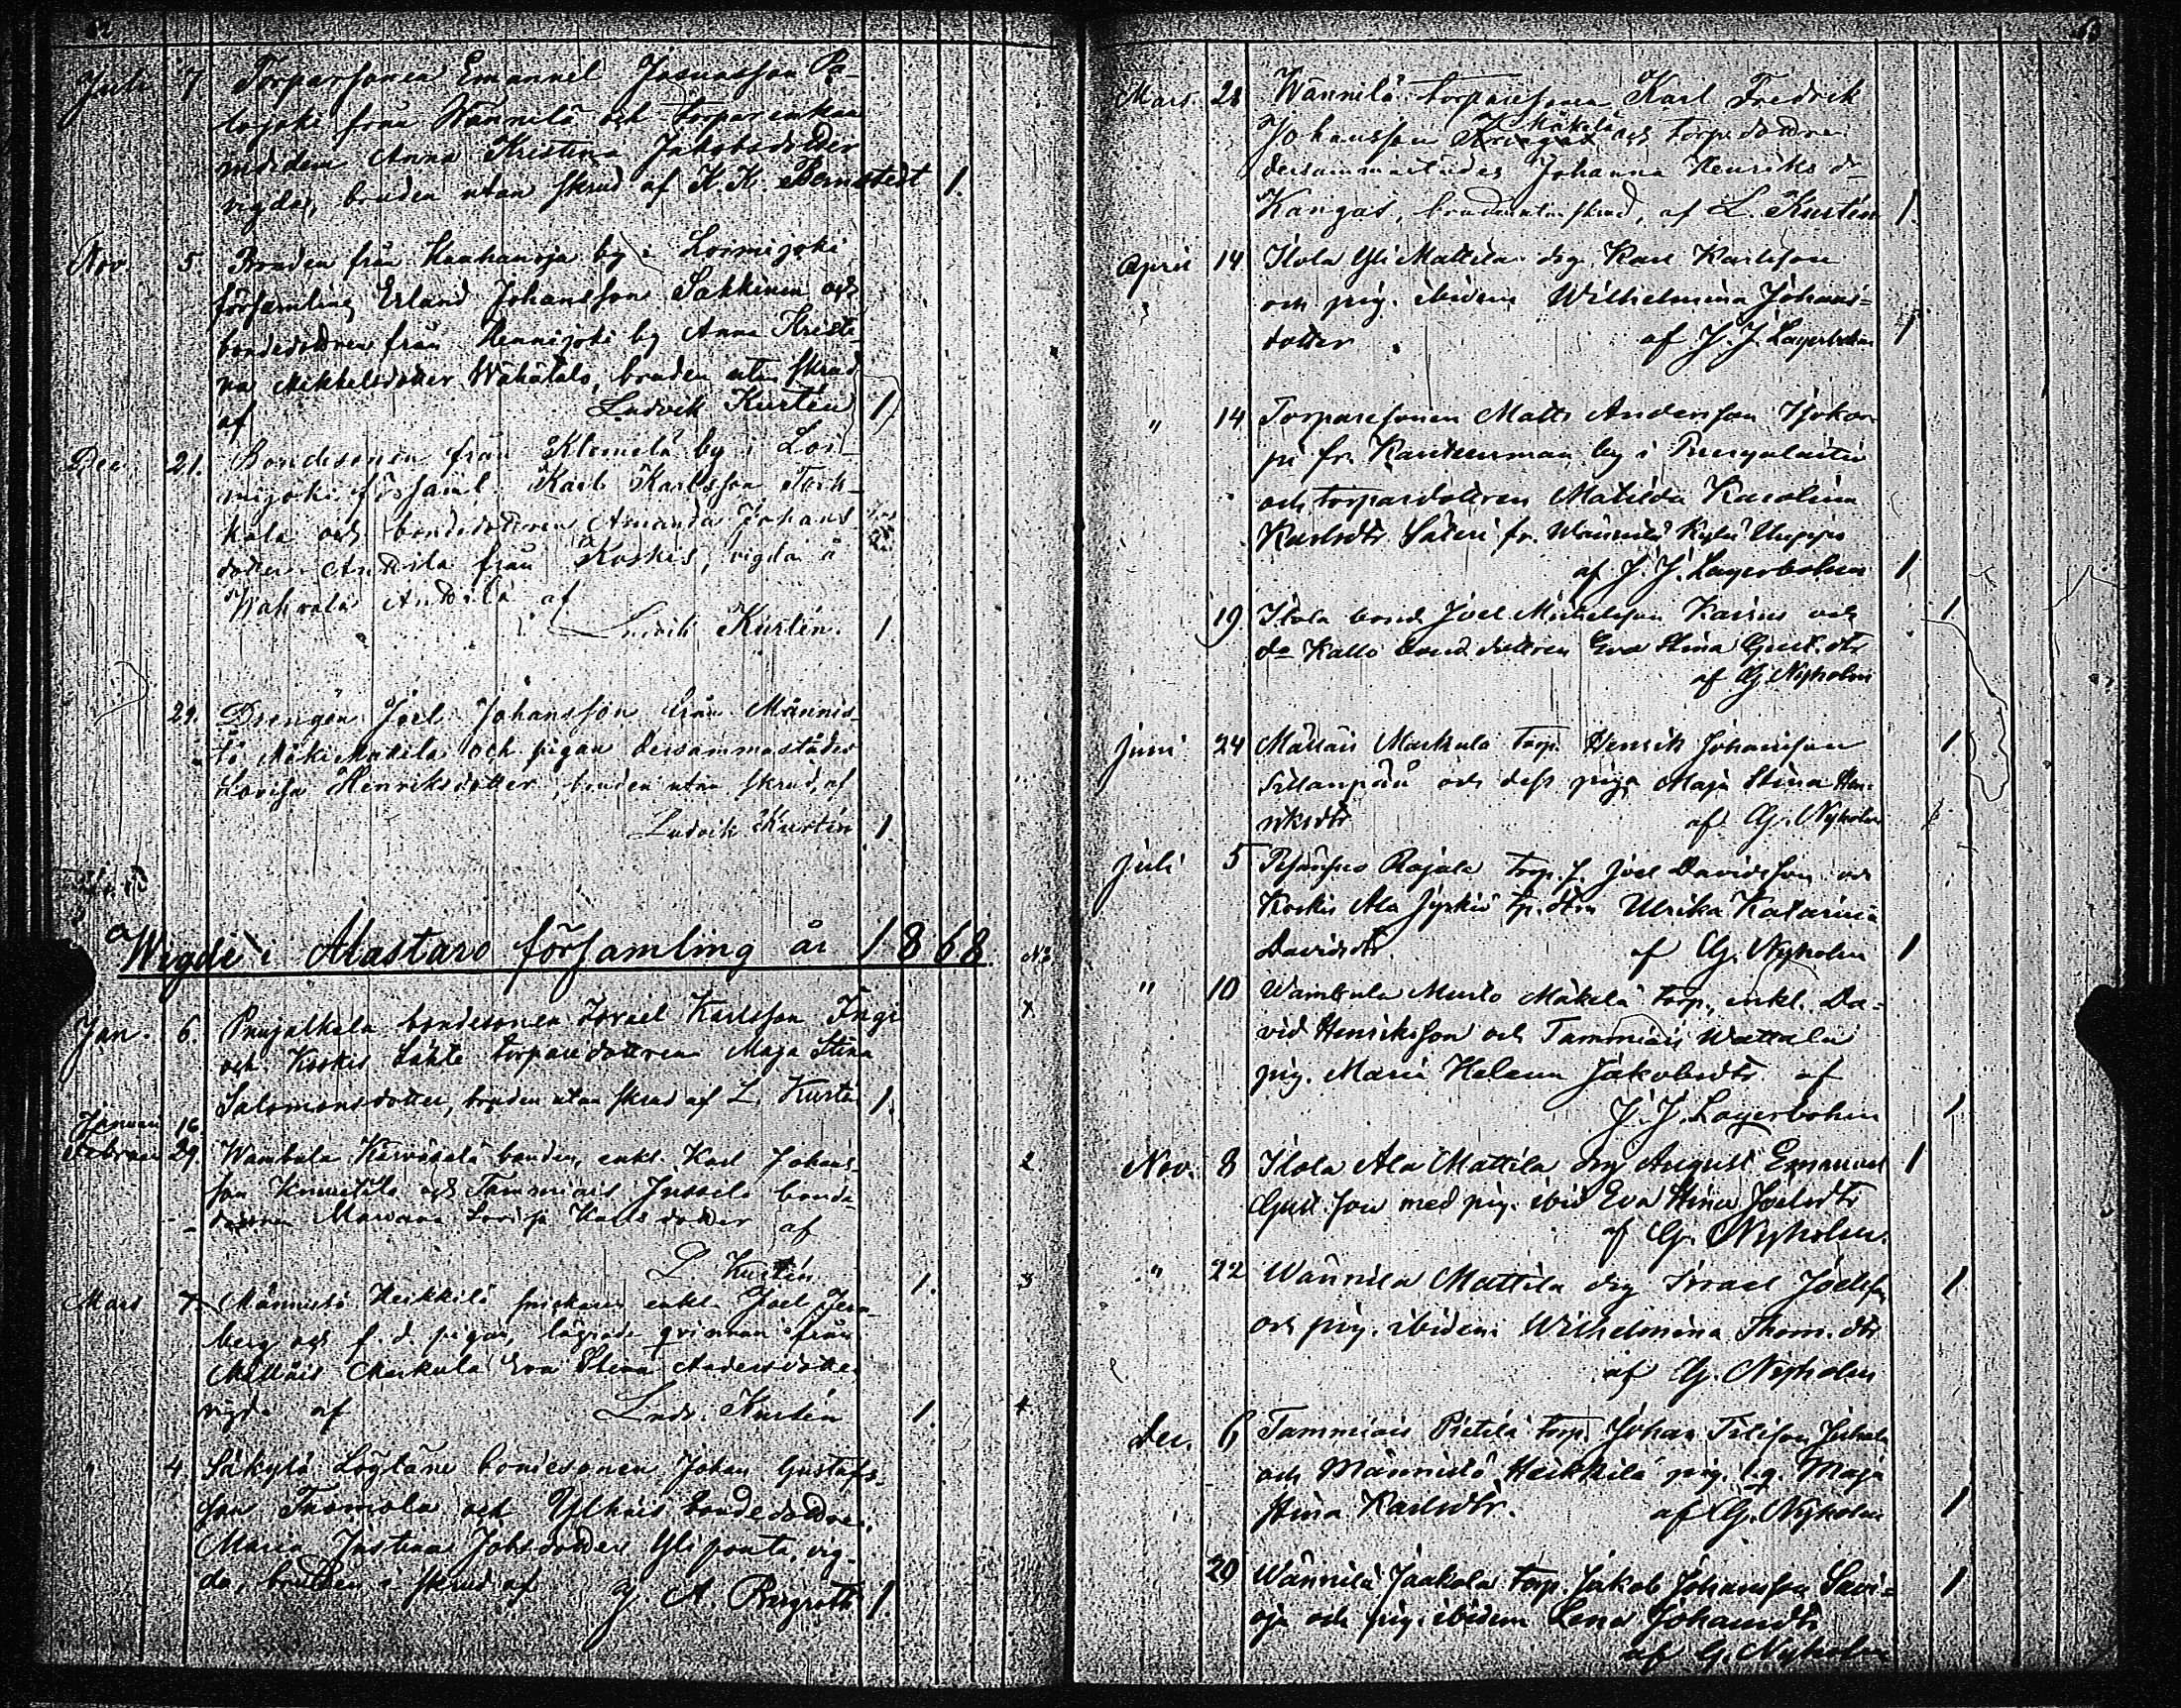 62
Juli 7 Torparsonen Emanuel Josuasson Pa-
lojoki från Wännilä och torparenkan
indidem Anna Kristina Jakobsdotter
vigda, bruden utan skrud af K. K. Bernstedt 1.
Nov. 5. Bonden från Haahanoja by i Loimijoki
församling Erland Johansson Sakkinen och
bondedottren från Hennijoki by Anna Kristi-
na Mikkelsdotter Wähätalo, bruden utan skrud
af Ludvik Kurtén 1
Dec. 21. Bondesonen från Klemelä by i Loi-
mijoki församl. Karl Karlsson
kala och bondedottren Amanda Johans
dotter Anttila från Koskis, vigda å
Anttila af
Ludvik Kurtén. 1.
29. Drengen Joel Johansson från Männis-
tö Mäki Matila och pigan dersammastädes
Lovisa Henriksdotter, bruden utan skrud, af
Ludvik Kurtén 1.
Wigde i Alastaro församling år 1868. No
Jan. 6. Punjalkala bondesonen Israel Karlsson
och Koskis Lähte torparedottren Maja Stina
Salomonsdotter, bruden utan skrud af L. Kurtén 1.
Januari 16.
Februari 29. Wambula bonden, enkl. Karl Johans-
son och Tammiais Jussila bonde
dottren Mariana Lovisa Karlsdotter af
L. Kurtén 1. 2.
Mars 7. Männistö Heikkilä snickaren enkl. Joel
berg och f. d. pigan, lägrade qvinnan från
Mälläis Markula Eva Stina Andersdotter
vigde af Ludv. Kurtén 1. 3
" 4 Säkylä bondesonen Johan Gustafs-
son Tuomola och Ylhäis bondedottren
Maria Justina Johsdotter Yliponta, vig-
da, bruden i skrud af J. A. Bergroth 1. 4
63
Mars. 28 Wännilä torparesonen Karl Fredrik
Johansson Mäkilä och torp. dottren
dersammastädes Johanna Henriksd:r
Kangas, bruden utan skrud, af L. Kurtén 1.
April 14 Ilola Yli Mattila drg. Karl Karlsson
och pig. ibidem Wilhelmina Johans=
dotter af J. J. Lagerbohm 1
" 14 Torparesonen Matts Andersson
pi fr. by i Punkalaitio
och torparedottren Matilda Karolina
Karlsdtr Säteri fr. Wännilä
af J. J. Lagerbohm 1
19 Ilola bond. Joel Mickelsson och
d:o Kallo bond. dottren Eva Stina Gust. dtr
af G. Nyholm 1
Juni 24 Mälläis Markula torp. Henrik Johansson
Sillanpää och dess piga Maja Stina Hen-
riksdtr af G. Nyholm 1
Juli 5 Rajala torp. s. Joel Davidsson och
Koskis Ala Jyrkis tp. dtrn Ulrika Katarina
Davidsdtr. af G. Nyholm 1
" 10 Wambula Murto Mäkelä torp. enkl. Da-
vid Henriksson och Tammiais Wattala
pig. Maria Helena Jakobsdtr. af
J. J. Lagerbohm 1
Nov. 8 Ilola Ala Mattila drg August Emanuel
Gust. son med pig. ibid Eva Stina Joelsdtr
af G. Nyholm. 1
" 22 Wännilä Mattila drg Israel Joelsson
och pig. ibidem Wilhelmina Thom. dtr
af G. Nyholm 1
Dec. 6 Tammiais Pietilä torp. Johan
och Männistö Heikkilä pig. l.q. Maja
Stina Karlsdtr. af G. Nyholm 1
20 Wännilä Jaakola torp. Jakob Johansson Savi-
oja och pig. ibidem Lena Johansdtr
af G. Nyholm 1